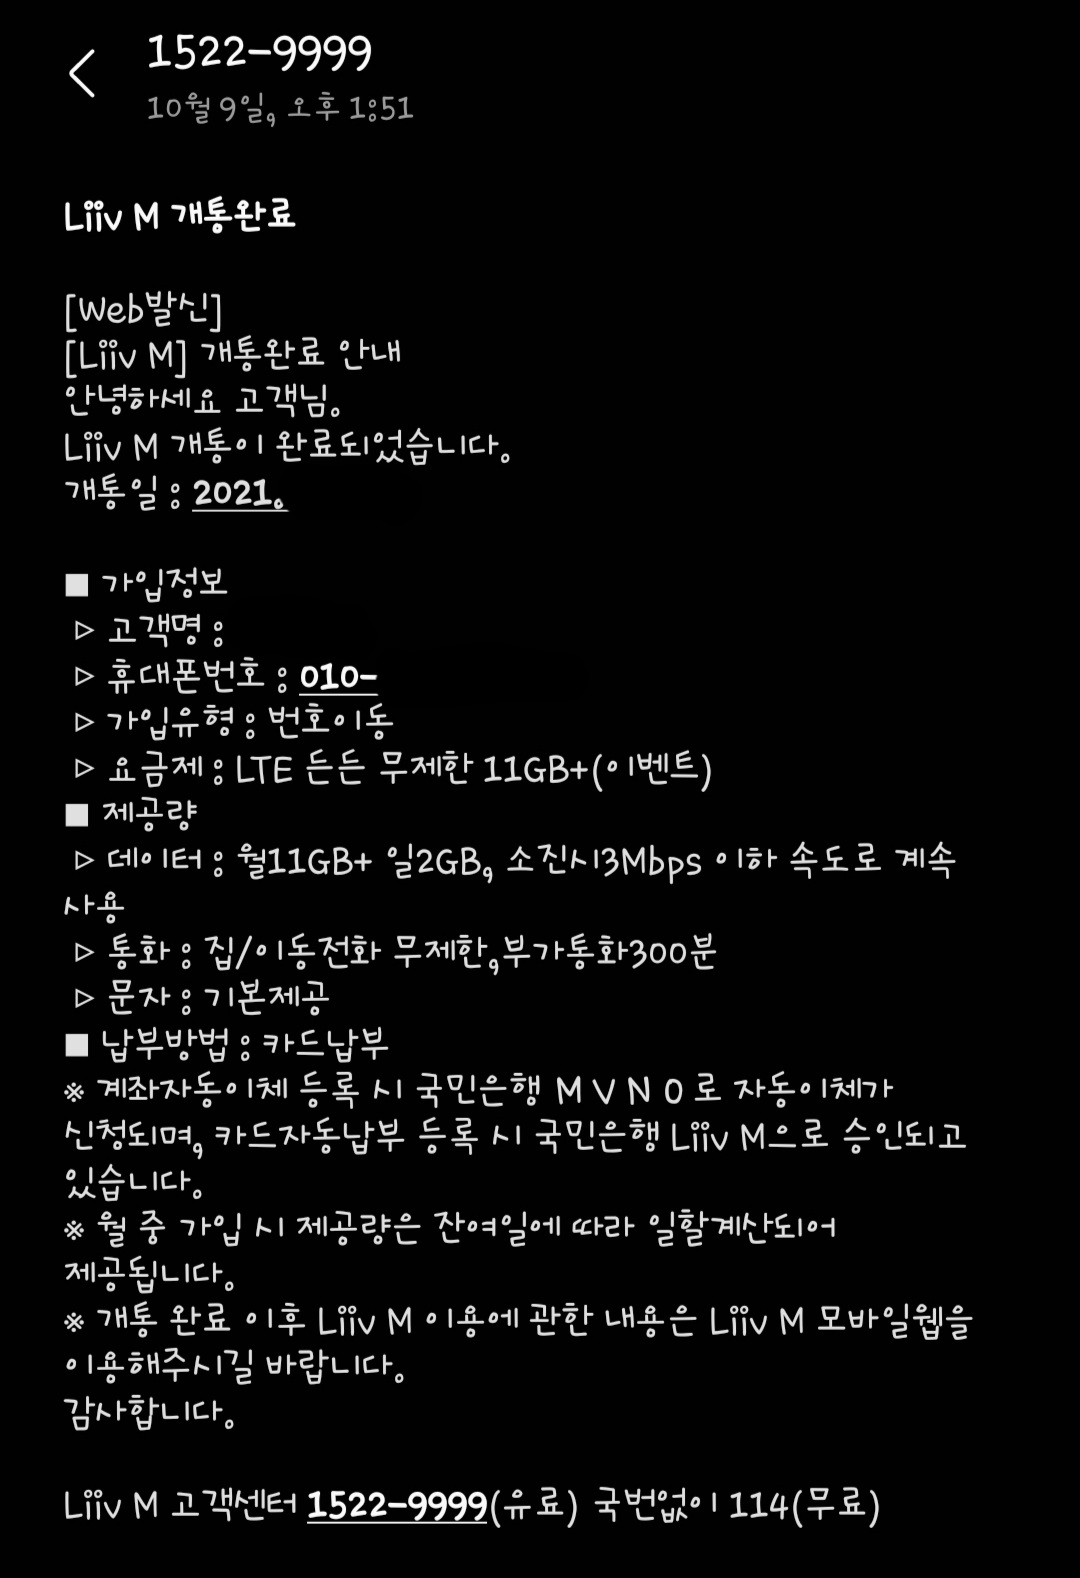 1522-9999
10월 9일, 오후 1:51
Liiv M 개통완료
[Web발신]
[Liiv M] 개통완료 안내
안녕하세요 고객님.
Liiv M 개통이 완료되었습니다.
개통일 : 2021.
■ 가입정보
▷ 고객명 :
▷ 휴대폰번호 : 010-
▷ 가입유형 : 번호이동
▷ 요금제 : LTE 든든 무제한 11GB+(이벤트)
■ 제공량
▷ 데이터 : 월11GB+ 일2GB, 소진시3Mbps 이하 속도로 계속
사용
▷ 통화 : 집/이동전화 무제한,부가통화300분
▷ 문자 : 기본제공
■ 납부방법 : 카드납부
※ 계좌자동이체 등록 시 국민은행 M V N O 로 자동이체가
신청되며, 카드자동납부 등록 시 국민은행 Liiv M으로 승인되고
있습니다.
※ 월 중 가입 시 제공량은 잔여일에 따라 일할계산되어
제공됩니다.
※ 개통 완료 이후 Liiv M 이용에 관한 내용은 Liiv M 모바일웹을
이용해주시길 바랍니다.
감사합니다.
Liiv M 고객센터 1522-9999(유료) 국번없이 114(무료)